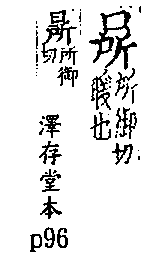 所御切
暖也
所御切
澤存堂本
p96